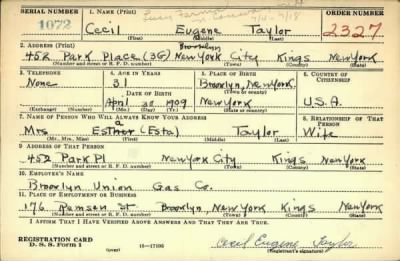 SERIAL NUMBER 1. NAME (Print) ORDER NUMBER
1072 Cecil Eugene Taylor 2327
(First) (Middle) (Last)
2. ADDRESS (Print) Brooklyn
452 Park Place (3G) New York City Kings New York
(Number and street or R. F. D. number) (Town) (County) (State)
3. TELEPHONE 4. AGE IN YEARS 5. PLACE OF BIRTH 6. COUNTRY OF CITIZENSHIP
None 31 Brooklyn, New York
DATE OF BIRTH (Town or county)
April 30 1909 New York U.S.A.
(Exchange) (Number) (Mo.) (Day) (Yr.) (State or country)
7. NAME OF PERSON WHO WILL ALWAYS KNOW YOUR ADDRESS 8. RELATIONSHIP OF THAT PERSON
Mrs Esther (Esta) Taylor Wife
(Mr., Mrs., Miss) (First) (Middle) (Last)
9. ADDRESS OF THAT PERSON
452 Park Pl New York City Kings New York
(Number and street or R. F. D. number) (Town) (County) (State)
10. EMPLOYER'S NAME
Brooklyn Union Gas Co.
11. PLACE OF EMPLOYMENT OR BUSINESS
176 Remsen St Brooklyn, New York Kings New York
(Number and street or R. F. D. number) (Town) (County) (State)
I AFFIRM THAT I HAVE VERIFIED ABOVE ANSWERS AND THAT THEY ARE TRUE.
REGISTRATION CARD
D. S. S. Form 1 (over) 16—17105 Cecil Eugene Taylor
(Registrant's signature)